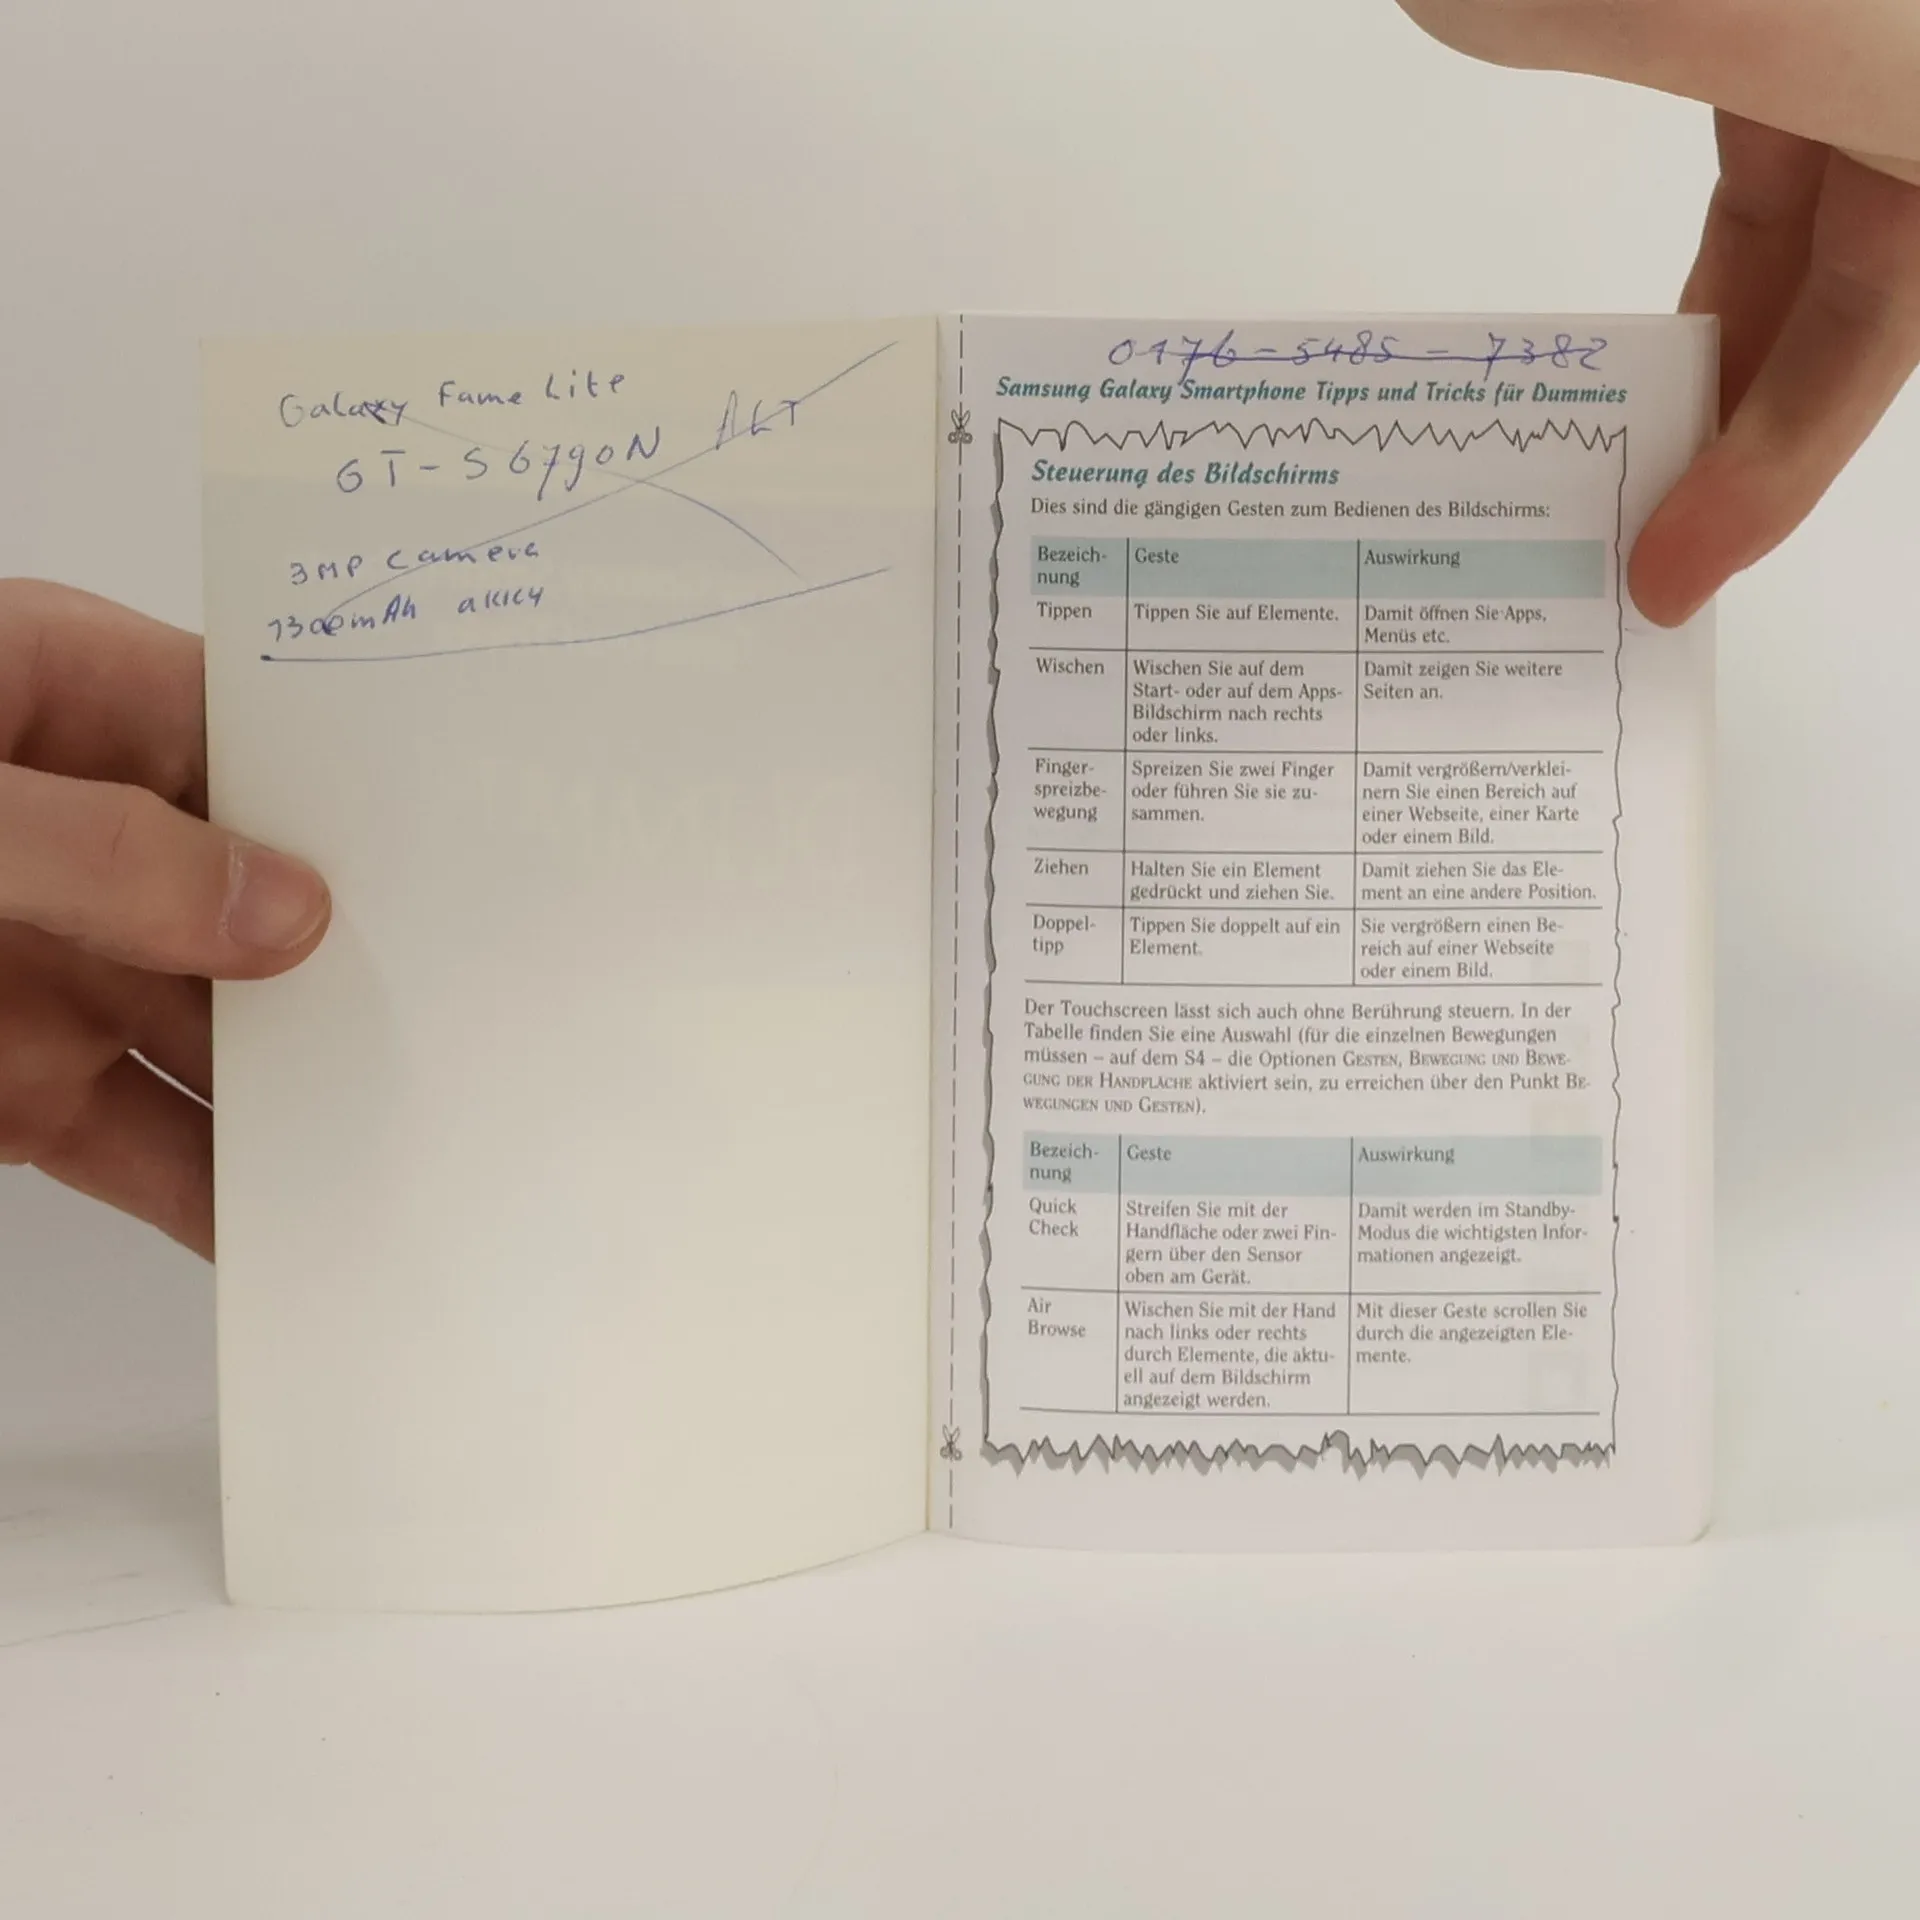 Galaxy Fame Lite
GT-S6790N ALT
3MP Camera
1300mAh akku
0176-5485-7382
Samsung Galaxy Smartphone Tipps und Tricks für Dummies
Steuerung des Bildschirms
Dies sind die gängigen Gesten zum Bedienen des Bildschirms:
Bezeich-
nung
Geste
Auswirkung
Tippen
Tippen Sie auf Elemente.
Damit öffnen Sie Apps,
Menüs etc.
Wischen
Wischen Sie auf dem
Start- oder auf dem Apps-
Bildschirm nach rechts
oder links.
Damit zeigen Sie weitere
Seiten an.
Finger-
spreizbe-
wegung
Spreizen Sie zwei Finger
oder führen Sie sie zu-
sammen.
Damit vergrößern/verklei-
nern Sie einen Bereich auf
einer Webseite, einer Karte
oder einem Bild.
Ziehen
Halten Sie ein Element
gedrückt und ziehen Sie.
Damit ziehen Sie das Ele-
ment an eine andere Position.
Doppel-
tipp
Tippen Sie doppelt auf ein
Element.
Sie vergrößern einen Be-
reich auf einer Webseite
oder einem Bild.
Der Touchscreen lässt sich auch ohne Berührung steuern. In der
Tabelle finden Sie eine Auswahl (für die einzelnen Bewegungen
müssen – auf dem S4 – die Optionen GESTEN, BEWEGUNG UND BEWE-
GUNG DER HANDFLÄCHE aktiviert sein, zu erreichen über den Punkt BE-
WEGUNGEN UND GESTEN).
Bezeich-
nung
Geste
Auswirkung
Quick
Check
Streifen Sie mit der
Handfläche oder zwei Fin-
gern über den Sensor
oben am Gerät.
Damit werden im Standby-
Modus die wichtigsten Infor-
mationen angezeigt.
Air
Browse
Wischen Sie mit der Hand
nach links oder rechts
durch Elemente, die aktu-
ell auf dem Bildschirm
angezeigt werden.
Mit dieser Geste scrollen Sie
durch die angezeigten Ele-
mente.